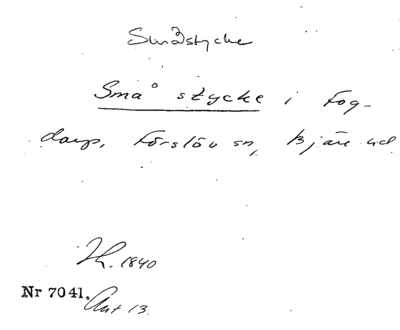 Småstycke
Små stycke i Fog-
darp, Förslöv sn, Bjäre hd
Lh. 1840
Nr 7041. Akt 13.